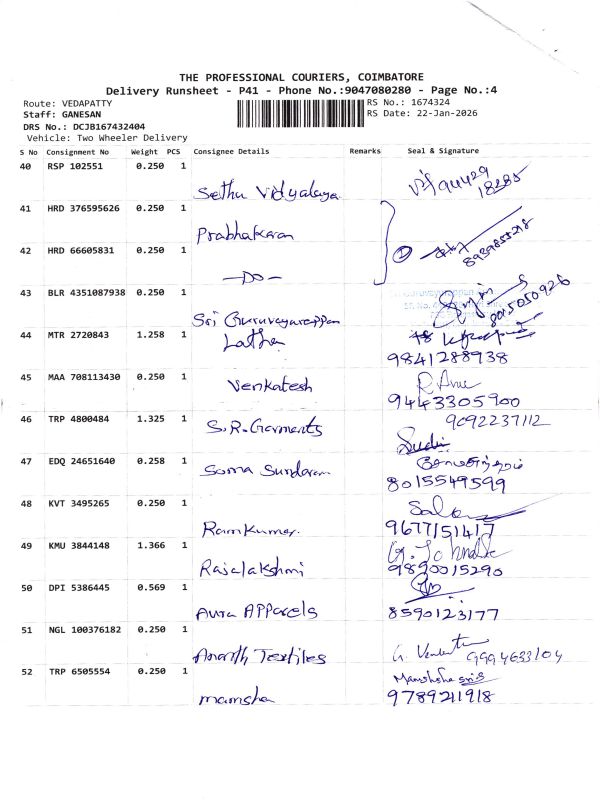 THE PROFESSIONAL COURIERS, COIMBATORE
Delivery Runsheet - P41 - Phone No.:9047080280 - Page No.:4
Route: VEDAPATTY
Staff: GANESAN
DRS No.: DCJB167432404
Vehicle: Two Wheeler Delivery
RS No.: 1674324
RS Date: 22-Jan-2026
S No Consignment No Weight PCS Consignee Details Remarks Seal & Signature
40 RSP 102551 0.250 1
Sethu Vidyalaya
41 HRD 376595626 0.250 1
Prabhakaran
42 HRD 66605831 0.250 1
—DO—
43 BLR 4351087938 0.250 1
Sri Guruvayurappan 8015050926
44 MTR 2720843 1.258 1
Latha 9841288938
45 MAA 708113430 0.250 1
Venkatesh 9443305900
46 TRP 4800484 1.325 1 9092237112
S.R. Garments
47 EDQ 24651640 0.258 1
Soma Sundaram 8015549599
48 KVT 3495265 0.250 1
Ramkumar 9677151417
49 KMU 3844148 1.366 1
Rajalakshmi 9890015290
50 DPI 5386445 0.569 1
Aura APParels 8590123177
51 NGL 100376182 0.250 1
Ananth Textiles 9994633104
52 TRP 6505554 0.250 1
mamsha 9789211918